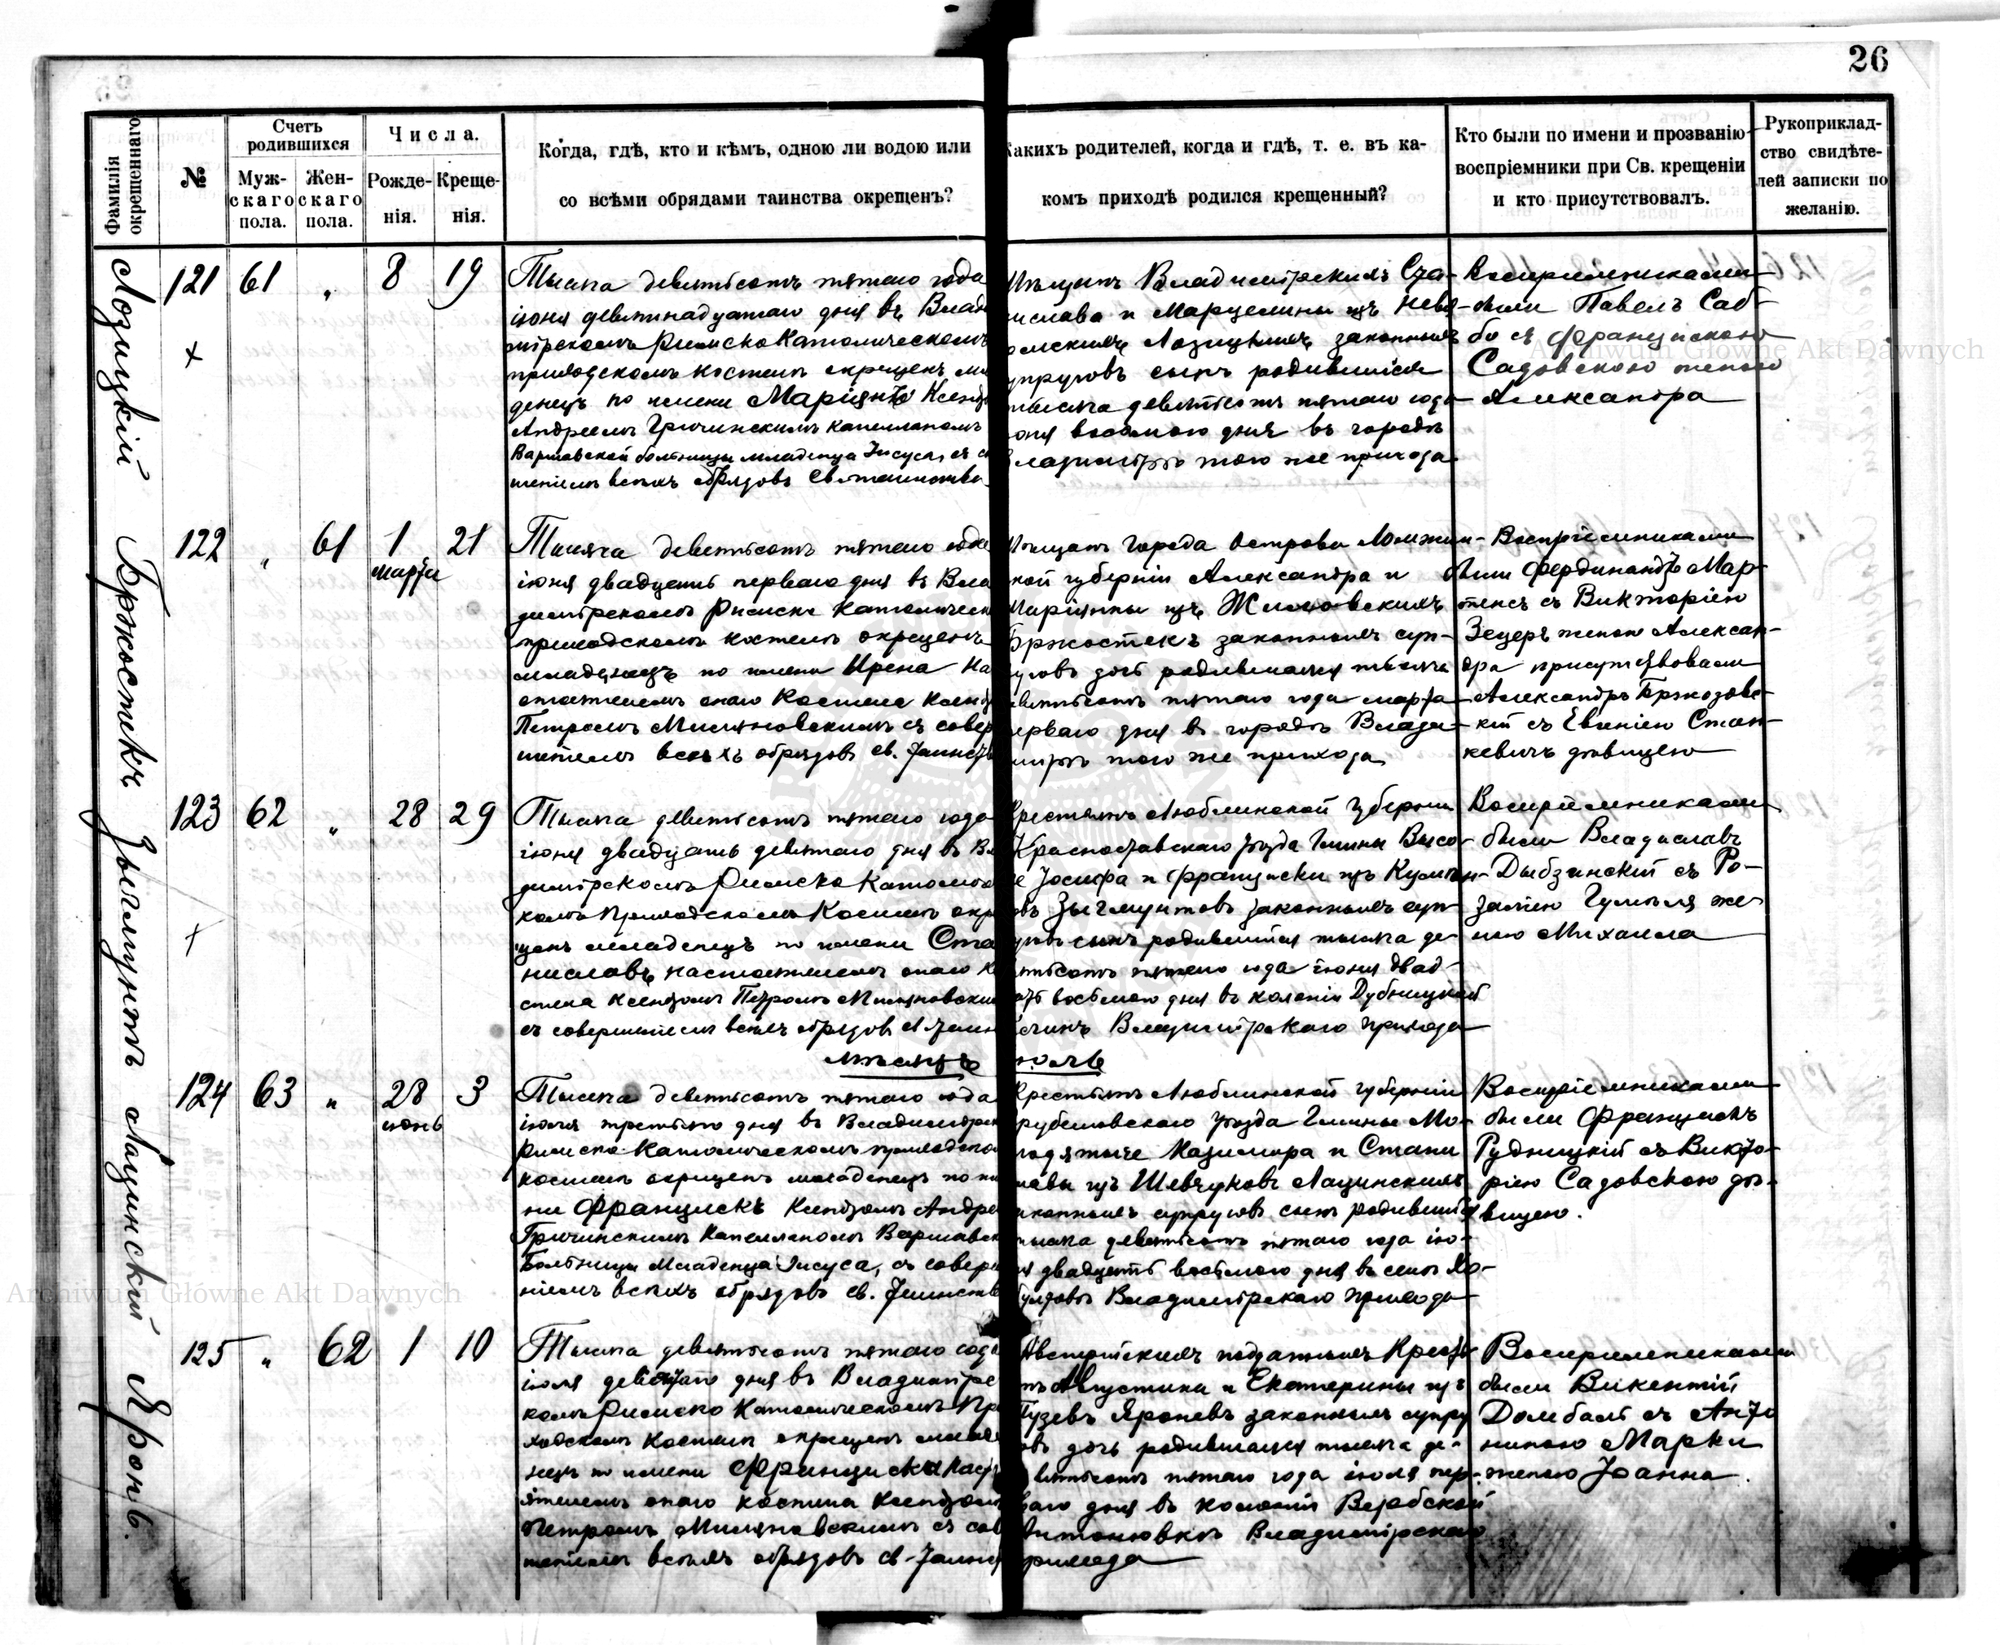 26
Фамилія окрещеннаго.
№
Счетъ родившихся
Мужскаго пола.
Женскаго пола.
Числа.
Рожденія.
Крещенія.
Когда, гдѣ, кто и кѣмъ, одною ли водою или
со всѣми обрядами таинства окрещенъ?
Какихъ родителей, когда и гдѣ, т. е. въ ка-
комъ приходѣ родился крещенный?
Кто были по имени и прозванію
воспріемники при Св. крещеніи
и кто присутствовалъ.
Рукоприклад-
ство свидѣте-
лей записки по
желанію.
Лозицкій
121 61 „ 8 19
Тысяча девятьсотъ пятаго года
іюня девятнадцатаго дня въ Влади
мірскомъ Римско Католическомъ
приходскомъ костелѣ окрещенъ мла
денецъ по имени Маріянъ Ксендз
Андреемъ Гричинскимъ капелланомъ
Варшавской больницы младенца Іисуса, съ со
шеніемъ всѣхъ обрядовъ Св. таинства
Мѣщанъ Владимірскихъ Ста-
нислава и Марцелины изъ Невя-
домскихъ Лозицкихъ законныхъ
супруговъ сынъ родившійся
тысяча девятьсотъ пятаго года
іюня восьмого дня въ городѣ
Владимірѣ того же прихода
Воспріемниками
были Павелъ Саб-
бо съ Францискою
Садовскою женою
Александра
Бржостекъ
122 „ 61 1 марта 21
Тысяча девятьсотъ пятаго года
іюня двадцать перваго дня въ Вла
димірскомъ Римско Католическ
приходскомъ костелѣ окрещенъ
младенецъ по имени Ирена На
стоятелемъ онаго Костела Ксендз
Петромъ Миляновскимъ съ совер
шеніемъ всѣхъ обрядовъ св. Таинств
Мѣщанъ города Острова Ломжин-
ской губерніи Александра и
Маріянны изъ
Бржостекъ законныхъ суп-
руговъ дочь родившаяся тысяча
девятьсотъ пятаго года марта
перваго дня въ городѣ Влади-
мірѣ того же прихода
Воспріемниками
были Фердинандъ Мар-
тенсъ съ Викторіею
Зецеръ женою Алексан-
дра присутствовали
Александръ Бржозовс-
кій съ Евгеніею Стан-
кевичъ дѣвицею
Зыгмунтъ
123 62 „ 28 29
Тысяча девятьсотъ пятаго года
іюня двадцать девятаго дня въ Вл
димірскомъ Римско Католичес
комъ Приходскомъ Костелѣ окр
щенъ младенецъ по имени Ста
ниславъ настоятелемъ онаго Ко
стела Ксендзомъ Петромъ Миляновским
съ совершеніемъ всѣхъ обрядовъ св Таин
Крестьянъ Люблинской Губерніи
Красноставскаго уѣзда Гмины Высо-
кое Іосифа и Франциски изъ
Зыгмунтовъ законныхъ суп-
руговъ сынъ родившійся тысяча де-
вятьсотъ пятаго года іюня двад-
цать восьмого дня въ колоніи Дубницкой
Владимірскаго прихода
Воспріемниками
были Владиславъ
Дыбзинскій съ Ро-
заліею же-
ною Михаила
мѣсяцъ іюль
Лацинскій
124 63 „ 28 іюнь 3
Тысяча девятьсотъ пятаго года
іюля третьяго дня въ Владимірск
Римско Католическомъ приходско
костелѣ окрещенъ младенецъ по им
ни Францискъ Ксендзомъ Андре
Гричинскимъ Капелланомъ Варшавск
Больницы Младенца Іисуса, съ совер
ніемъ всѣхъ обрядовъ св. Таинств
Крестьянъ Люблинской губерніи
Грубешовскаго уѣзда Гмины Мо-
лодятыче Казимира и Стани
славы изъ Шевчуковъ Лацинскихъ
законныхъ супруговъ сынъ родившійся
тысяча девятьсотъ пятаго года ію-
ня двадцать восьмого дня въ селѣ Хо-
Владимірскаго прихода
Воспріемниками
были Францискъ
Рудницкій съ Викто-
ріею Садовскою дѣ-
вицею.
Яронь.
125 „ 62 1 10
Тысяча девятьсотъ пятаго года
іюля десятаго дня въ Владимірс
комъ Римско Католическомъ При
ходскомъ Костелѣ окрещенъ младе
нецъ по имени Франциска Наст
ятелемъ онаго костела Ксендзом
Петромъ Миляновскимъ съ сов
шеніемъ всѣхъ обрядовъ св. Таинс
Австрійскихъ подданныхъ Кресть
янъ Августина и Екатерины изъ
Яроневъ законныхъ супру
говъ дочь родившаяся тысяча де-
вятьсотъ пятаго года іюля пер-
ваго дня въ колоніи Вербской
Антоновкѣ Владимірскаго
прихода
Воспріемниками
были Викентій
Домбалъ съ Анто
ниною Марки
женою Іоанна.
Archiwum Główne Akt Dawnych
Archiwum Główne Akt Dawnych